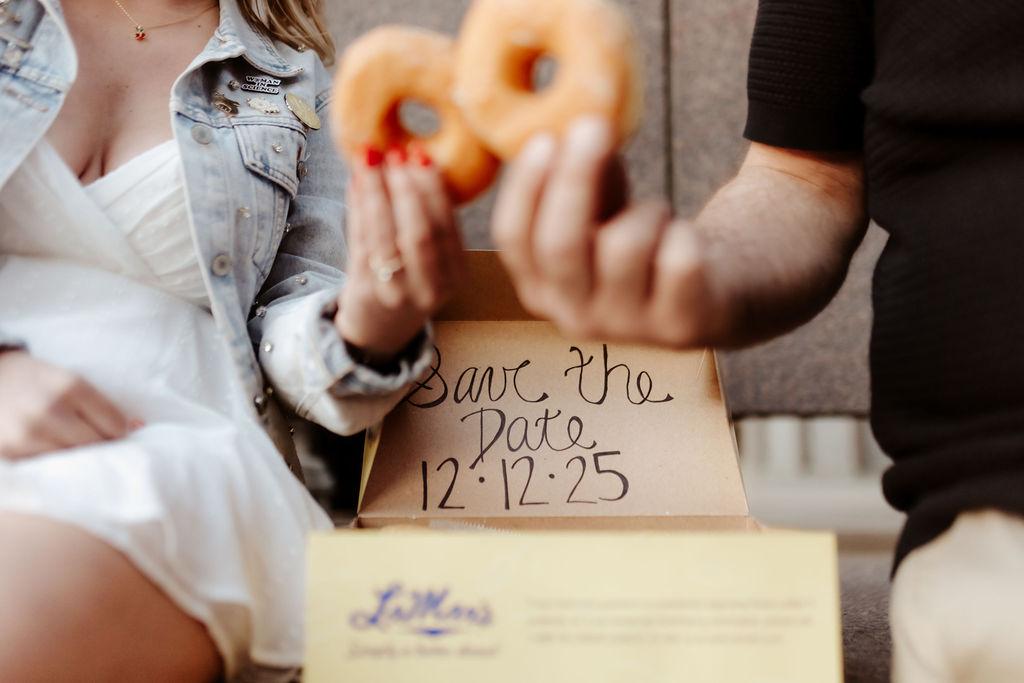 WOMAN
IN
SCIENCE
Save the
Date
12·12·25
LaMar's
Simply a better donut.